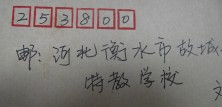 253800
邮：河北衡水市故城
特教学校